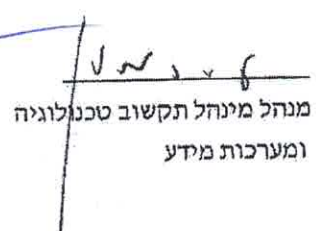 מנהל מינהל תקשוב טכנולוגיה
ומערכות מידע